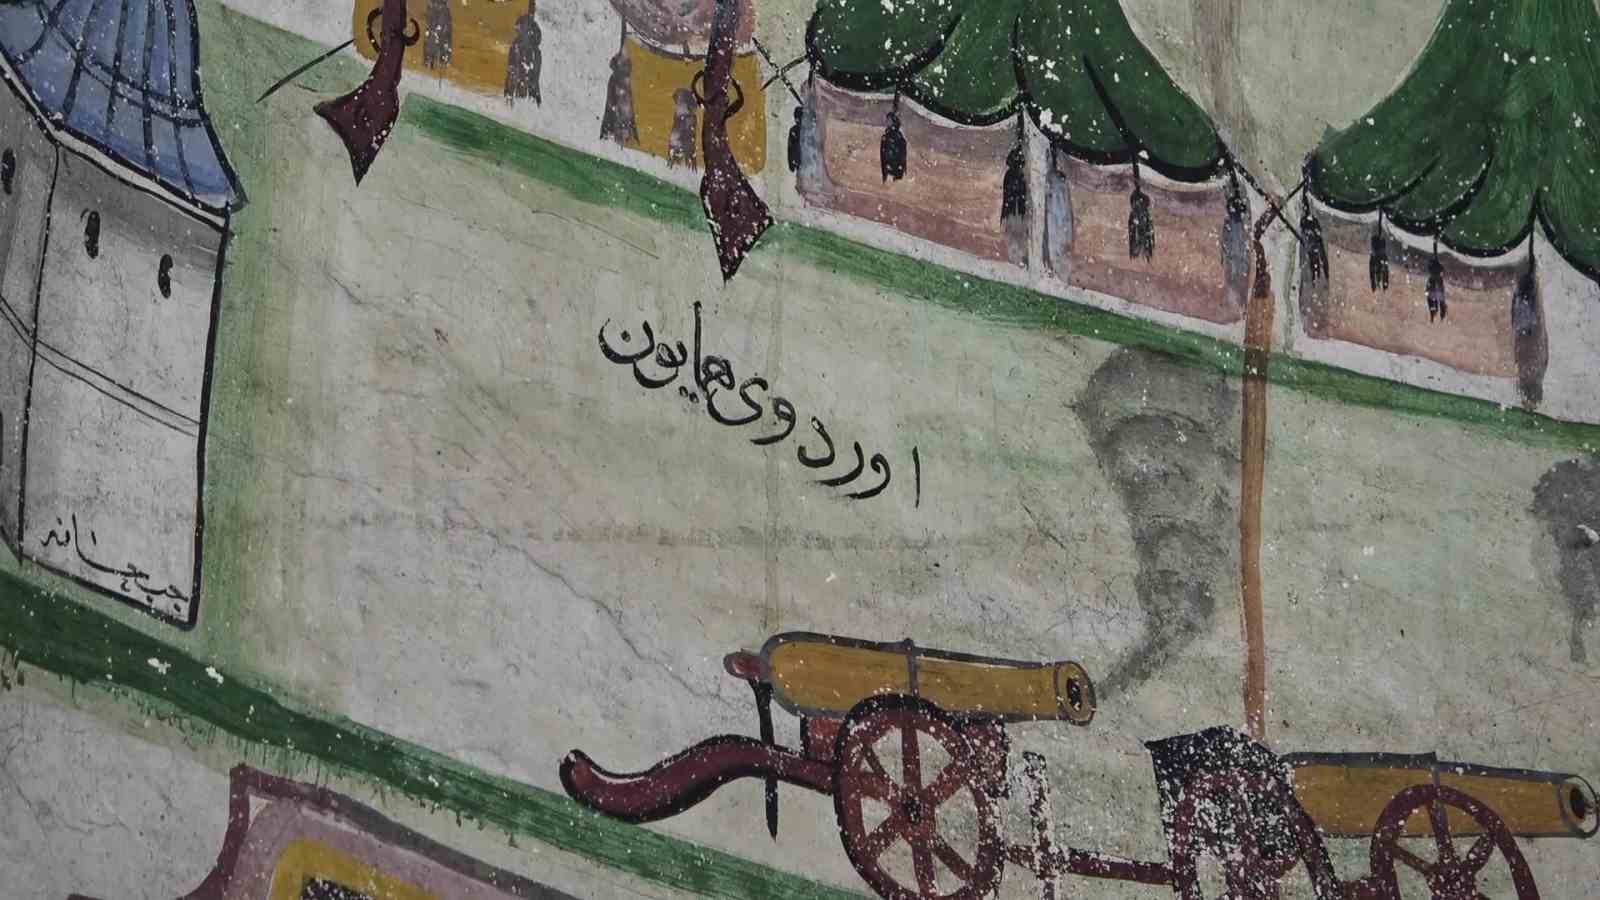 اوردوی همایون
جبخانه